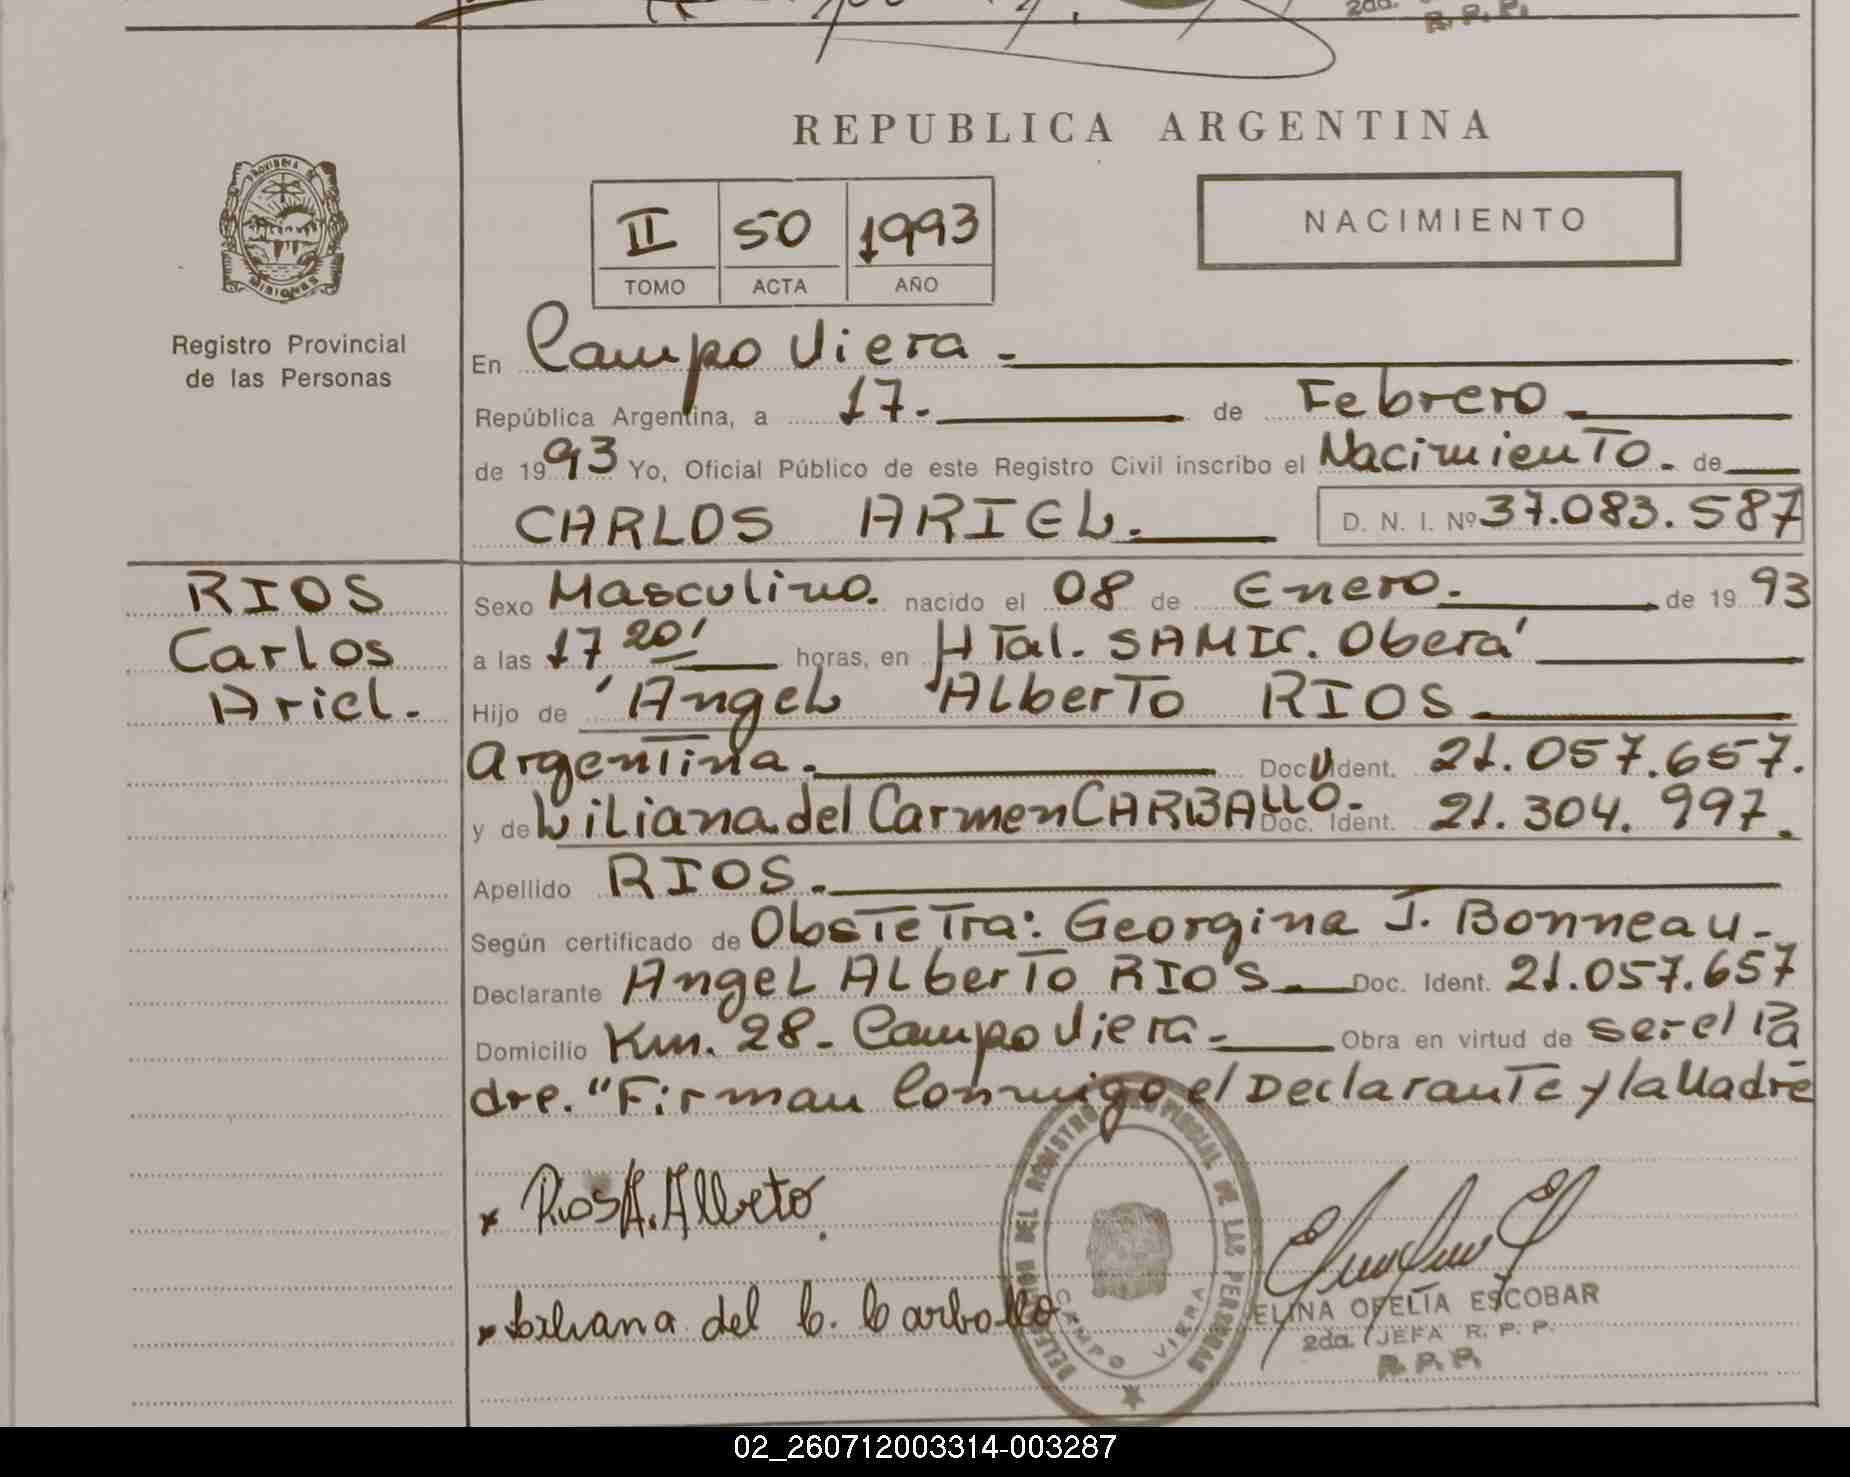 2da.
R. P. P.
REPUBLICA ARGENTINA
PROVINCIA DE
MISIONES
Registro Provincial
de las Personas
NACIMIENTO
II 50 1993
TOMO ACTA AÑO
En Campo Viera -
República Argentina, a 17. de Febrero
de 1993 Yo, Oficial Público de este Registro Civil inscribo el Nacimiento. de
CARLOS ARIEL. D. N. I. Nº 37.083.587
RIOS
Carlos
Ariel.
Sexo Masculino. nacido el 08 de Enero. de 1993
a las 17 20' horas, en HTal. SAMIC. Oberá
Hijo de Angel Alberto RIOS
Argentina. Doc. Ident. 21.057.657.
y de Liliana del Carmen CARBALLO. Doc. Ident. 21.304.997.
Apellido RIOS.
Según certificado de Obstetra: Georgina J. Bonneau.
Declarante Angel Alberto RIOS Doc. Ident. 21.057.657
Domicilio Km. 28 - Campo Viera - Obra en virtud de ser el Pa
dre. "Firman Conmigo el Declarante y la Madre
x Rios A. Alberto.
x Liliana del C. Carballo
DEL REGISTRO PROVINCIAL DE LAS PERSONAS
CAMPO VIERA
ELINA OFELIA ESCOBAR
2da. JEFA R. P. P.
R. P. P.
02_260712003314-003287